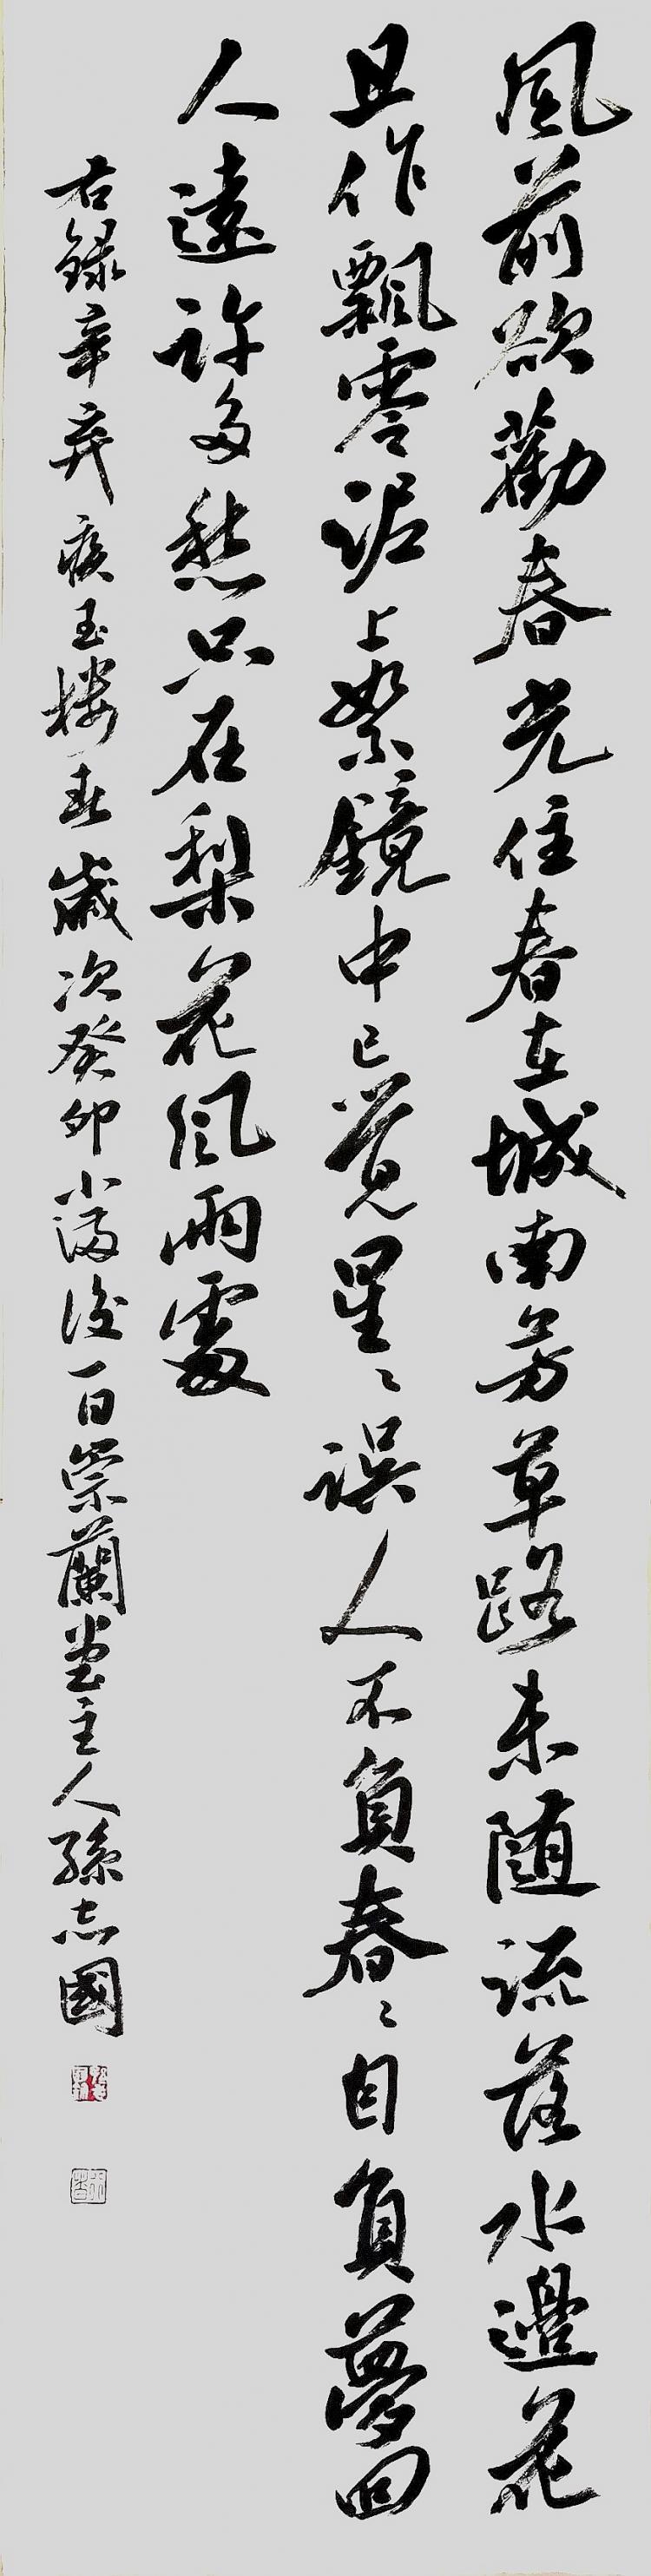 風前欲勸春光住春在城南芳草路未随流落水邊花
且作飄零泥上絮鏡中已覺星〻誤人不負春〻自負夢回
人遠許多愁只在梨花風雨處
右録辛棄疾玉楼春歲次癸卯小滿後一日崇蘭堂主人孫志國